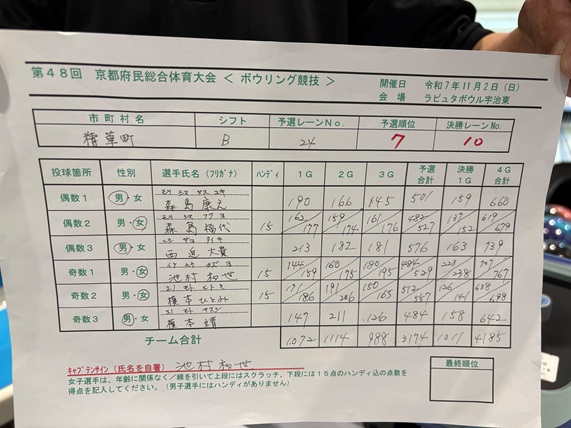 第48回 京都府民総合体育大会 < ボウリング競技 >
開催日 令和7年11月2日(日)
会 場 ラピュタボウル宇治東
市町村名 シフト 予選レーンNo. 予選順位 決勝レーンNo.
精華町 B 24 7 10
投球箇所 性別 選手氏名(フリガナ) ハンディ 1G 2G 3G 予選合計 決勝1G 4G合計
偶数1 男・女 森島康之 190 166 145 501 159 660
偶数2 男・女 森島福代 15 162/177 159/174 161/176 482/527 137/152 619/679
偶数3 男・女 西迫大貴 213 182 181 576 163 739
奇数1 男・女 池村初世 15 144/159 160/175 180/195 484/529 223/238 707/767
奇数2 男・女 榎本ひとみ 15 171/186 191/206 150/165 512/557 126/141 638/698
奇数3 男・女 榎本靖 147 211 126 484 158 642
チーム合計 1072 1114 988 3174 1011 4185
キャプテンサイン(氏名を自署) 池村初世
最終順位
女子選手は、年齢に関係なく/線を引いて上段にはスクラッチ、下段には15点のハンディ込の点数を
得点を記入してください。(男子選手にはハンディがありません)